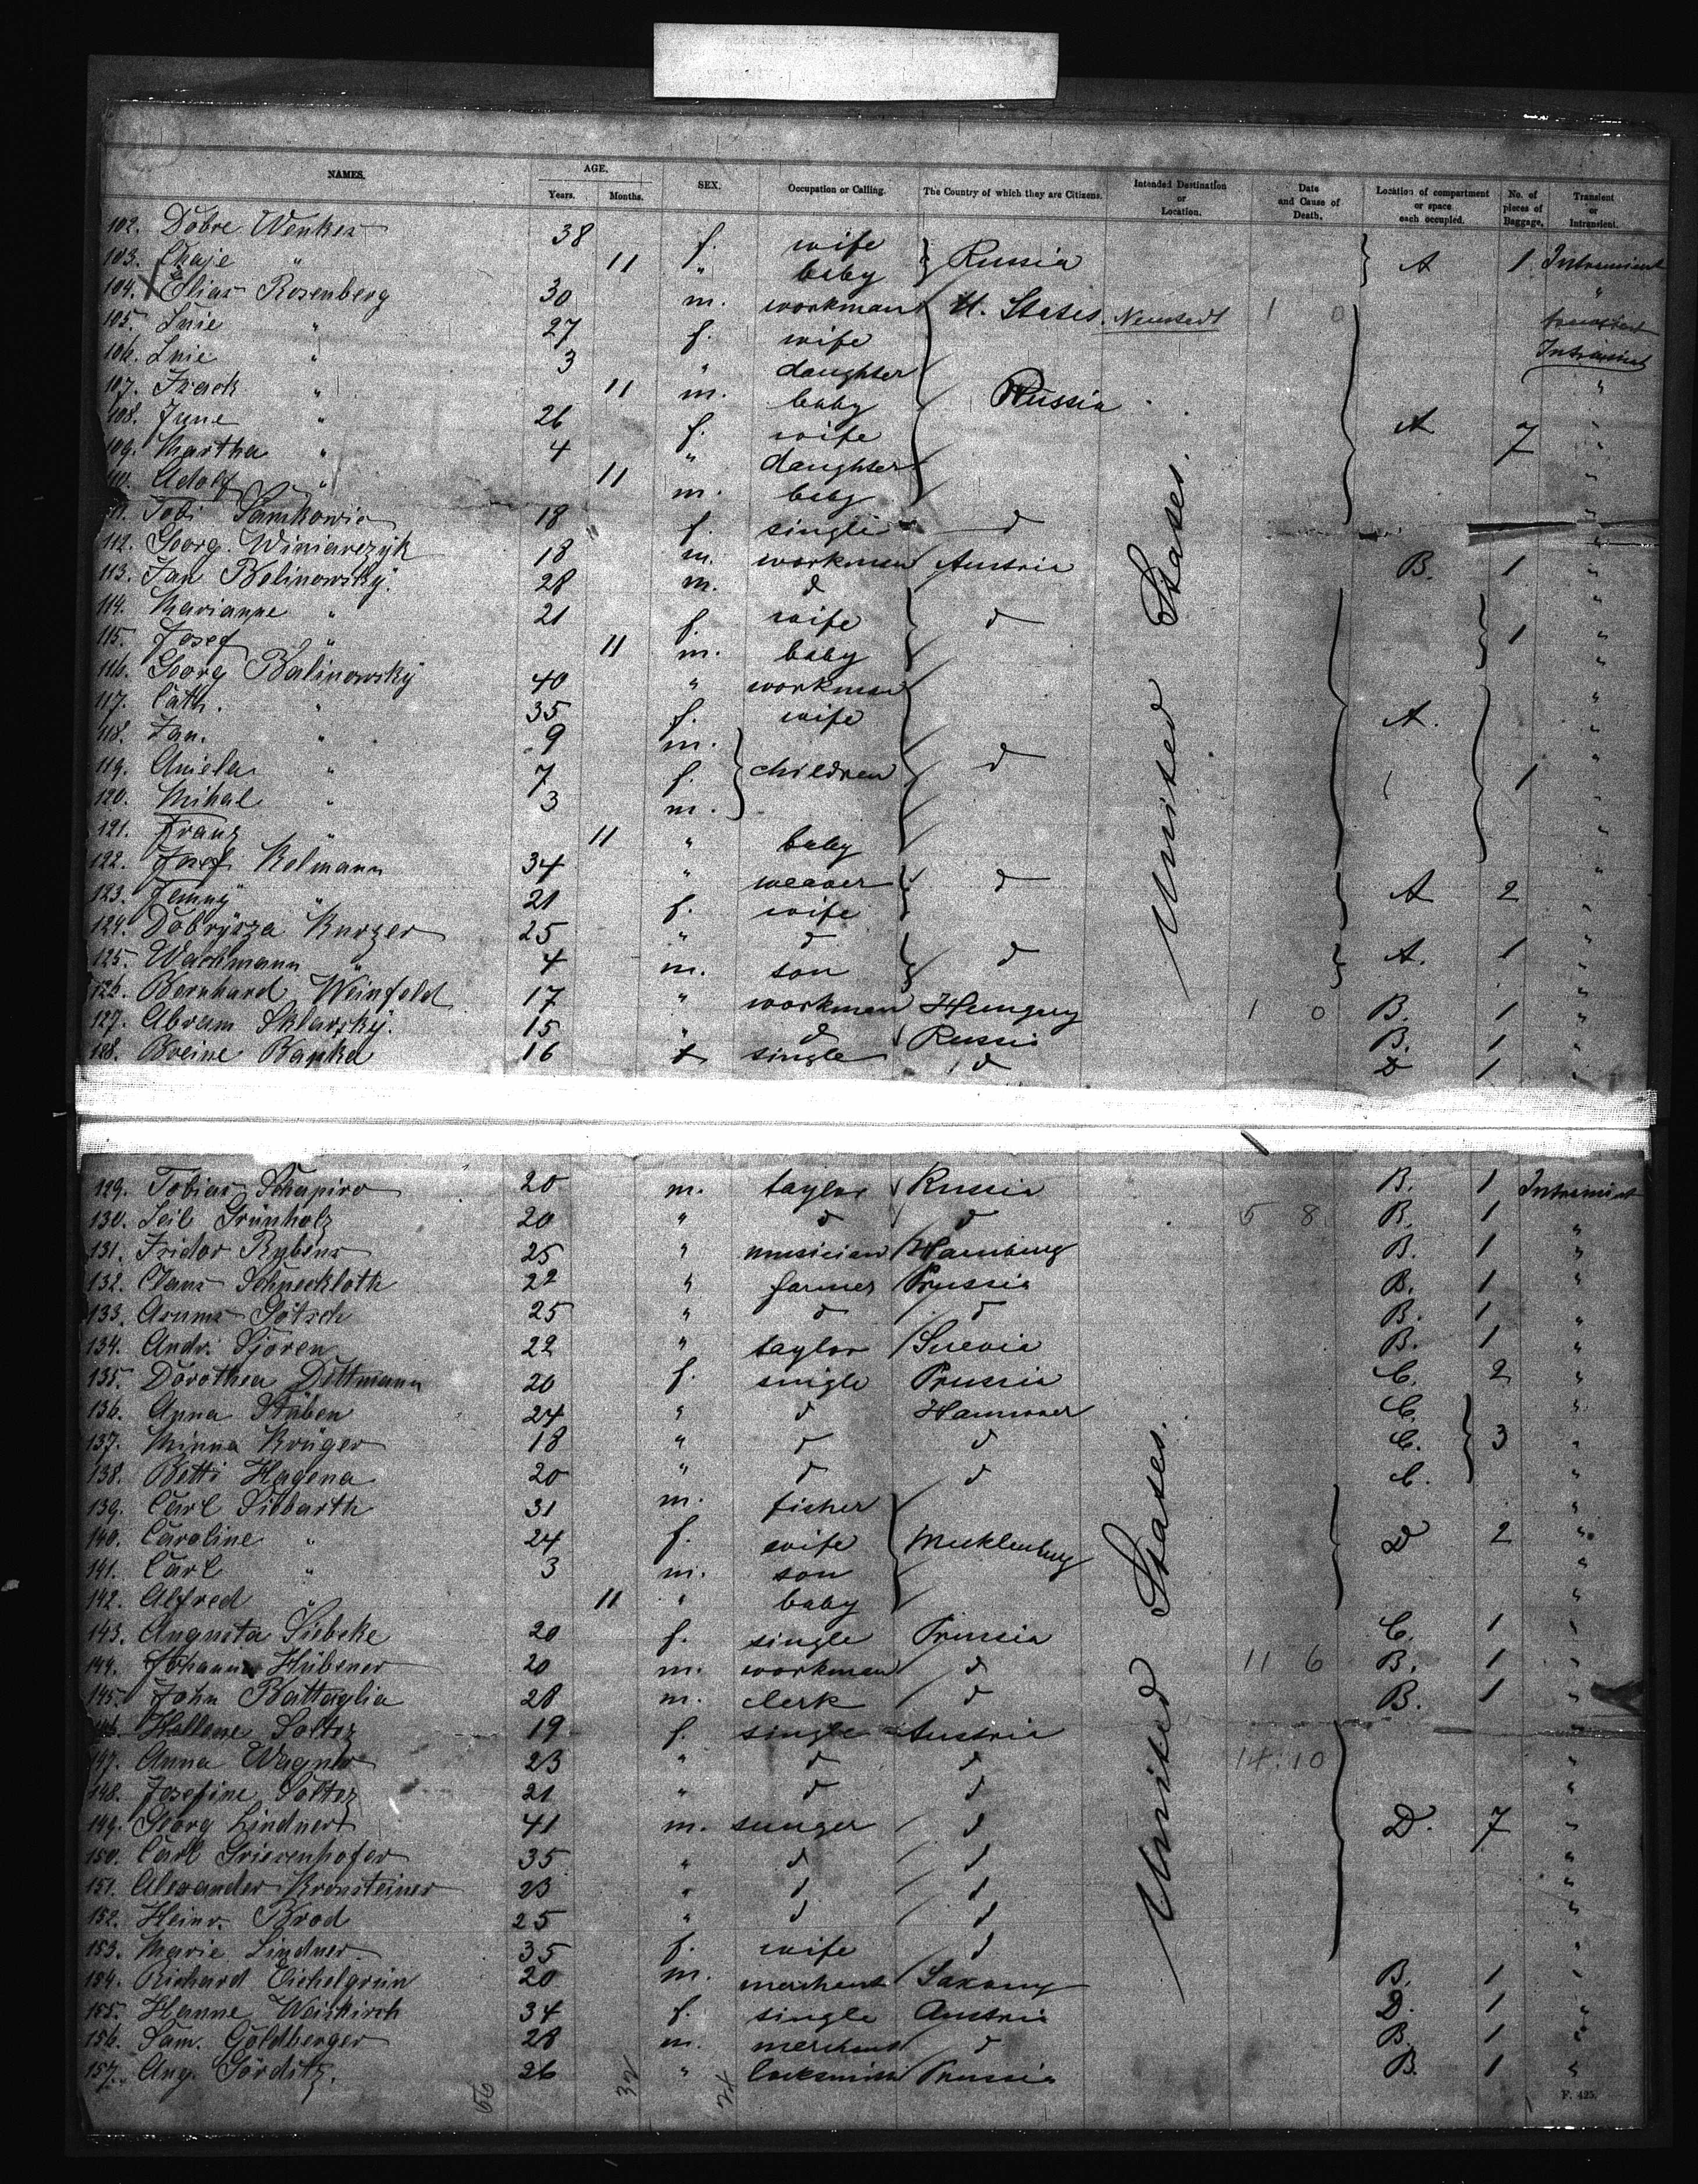 NAMES. AGE. Years. Months. SEX. Occupation or Calling. The Country of which they are Citizens. Intended Destination or Location. Date and Cause of Death. Location of compartment or space each occupied. No. of pieces of Baggage. Transient or Intransient.
102. Dobre Wenkes 38 f. wife Russia A 1 Intransient
103. Chaje " 11 " baby "
104. Elias Rosenberg 30 m. workman U. States. Neustadt 1 0 transient
105. Inie " 27 f. wife Intransient
106. Inie " 3 " daughter "
107. Izack " 11 m. baby Russia "
108. June " 26 f. wife A 7 "
109. Martha " 4 " daughter "
110. Adolf " 11 m. baby "
111. Tobi 18 f. single d "
112. Georg. Winiarczyk 18 m. workman Austria B. 1 "
113. Jan Belinowsky. 28 m. d "
114. Marianne " 21 f. wife d 1 "
115. Josef " 11 m. baby "
116. Georg Balinowsky 40 " workman "
117. Cath. " 35 f. wife A. "
118. Jan. " 9 m. "
119. Aniela " 7 f. children d 1 "
120. Mihal " 3 m. "
121. Franz " 11 " baby "
122. Josef Kelmann 34 " weaver d A 2 "
123. Jenny " 21 f. wife "
124. Dobrysza Kurzer 25 " d d A. 1 "
125. Wachmann " 4 m. son "
126. Bernhard Weinfeld 17 " workman Hungary 1 0 B. 1 "
127. Abram Sklarsky. 15 " d Russia B. 1 "
128. Breine Bapka 16 f single d D 1 "
United States.
129. Tobias Schapiro 20 m. taylor Russia B. 1 Intransient
130. Leib Grünholz 20 " d d 5 8 B. 1 "
131. Isidor Rubens 25 " musician Hamburg B. 1 "
132. Claus Schneekloth 22 " farmer Prussia B. 1 "
133. Asmus Götsch 25 " d d B. 1 "
134. Andr. Sjören 22 " taylor Suevia B. 1 "
135. Dorothea Dittmann 20 f. single Prussia C. 2 "
136. Anna Stüben 24 " d Hannover C. "
137. Minna Krüger 18 " d d C. 3 "
138. Betti Hagena 20 " d d C. "
139. Carl Sibbarth 31 m. fisher "
140. Caroline " 24 f. wife Mecklenburg D 2 "
141. Carl " 3 m. son "
142. Alfred " 11 " baby "
143. Augusta Siebeke 20 f. single Prussia C. 1 "
144. Johann Hübener 20 m. workman d 11 6 B. 1 "
145. John Battaglia 28 m. clerk d B. 1 "
146. Hellene Soltez 19 f. single Austria "
147. Anna Wagner 23 " d d 14.10 "
148. Josefine Soltez 21 " d d "
149. Georg Lindner 41 m. sunger d D. 7 "
150. Carl Griesenhofer 35 " d d "
151. Alexander Kronsteiner 23 " d d "
152. Heinr. Brod 25 " d d "
153. Marie Lindner 35 f. wife d "
154. Richard Eichelgrün 20 m. merchant Saxony B. 1 "
155. Hanne Weiskirch 34 f. single Austria D. 1 "
156. Sam. Goldberger 28 m. merchant d B. 1 "
157. Aug. Görditz. 26 " locksmith Prussia B. 1 "
United States.
56 32 24
F. 425.